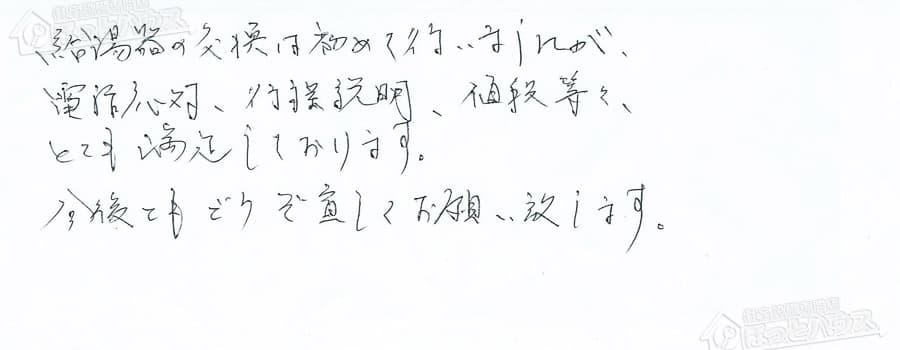 給湯器の交換は初めて行いましたが、
電話応対、行程説明、値段等々、
とても満足しております。
今後ともどうぞ宜しくお願い致します。
ほっとハウス